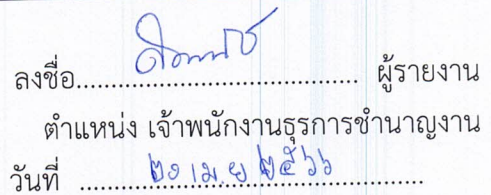 ลงชื่อ.................................... ผู้รายงาน
ตำแหน่ง เจ้าพนักงานธุรการชำนาญงาน
วันที่ ๒๑ เม.ย ๒๕๖๖